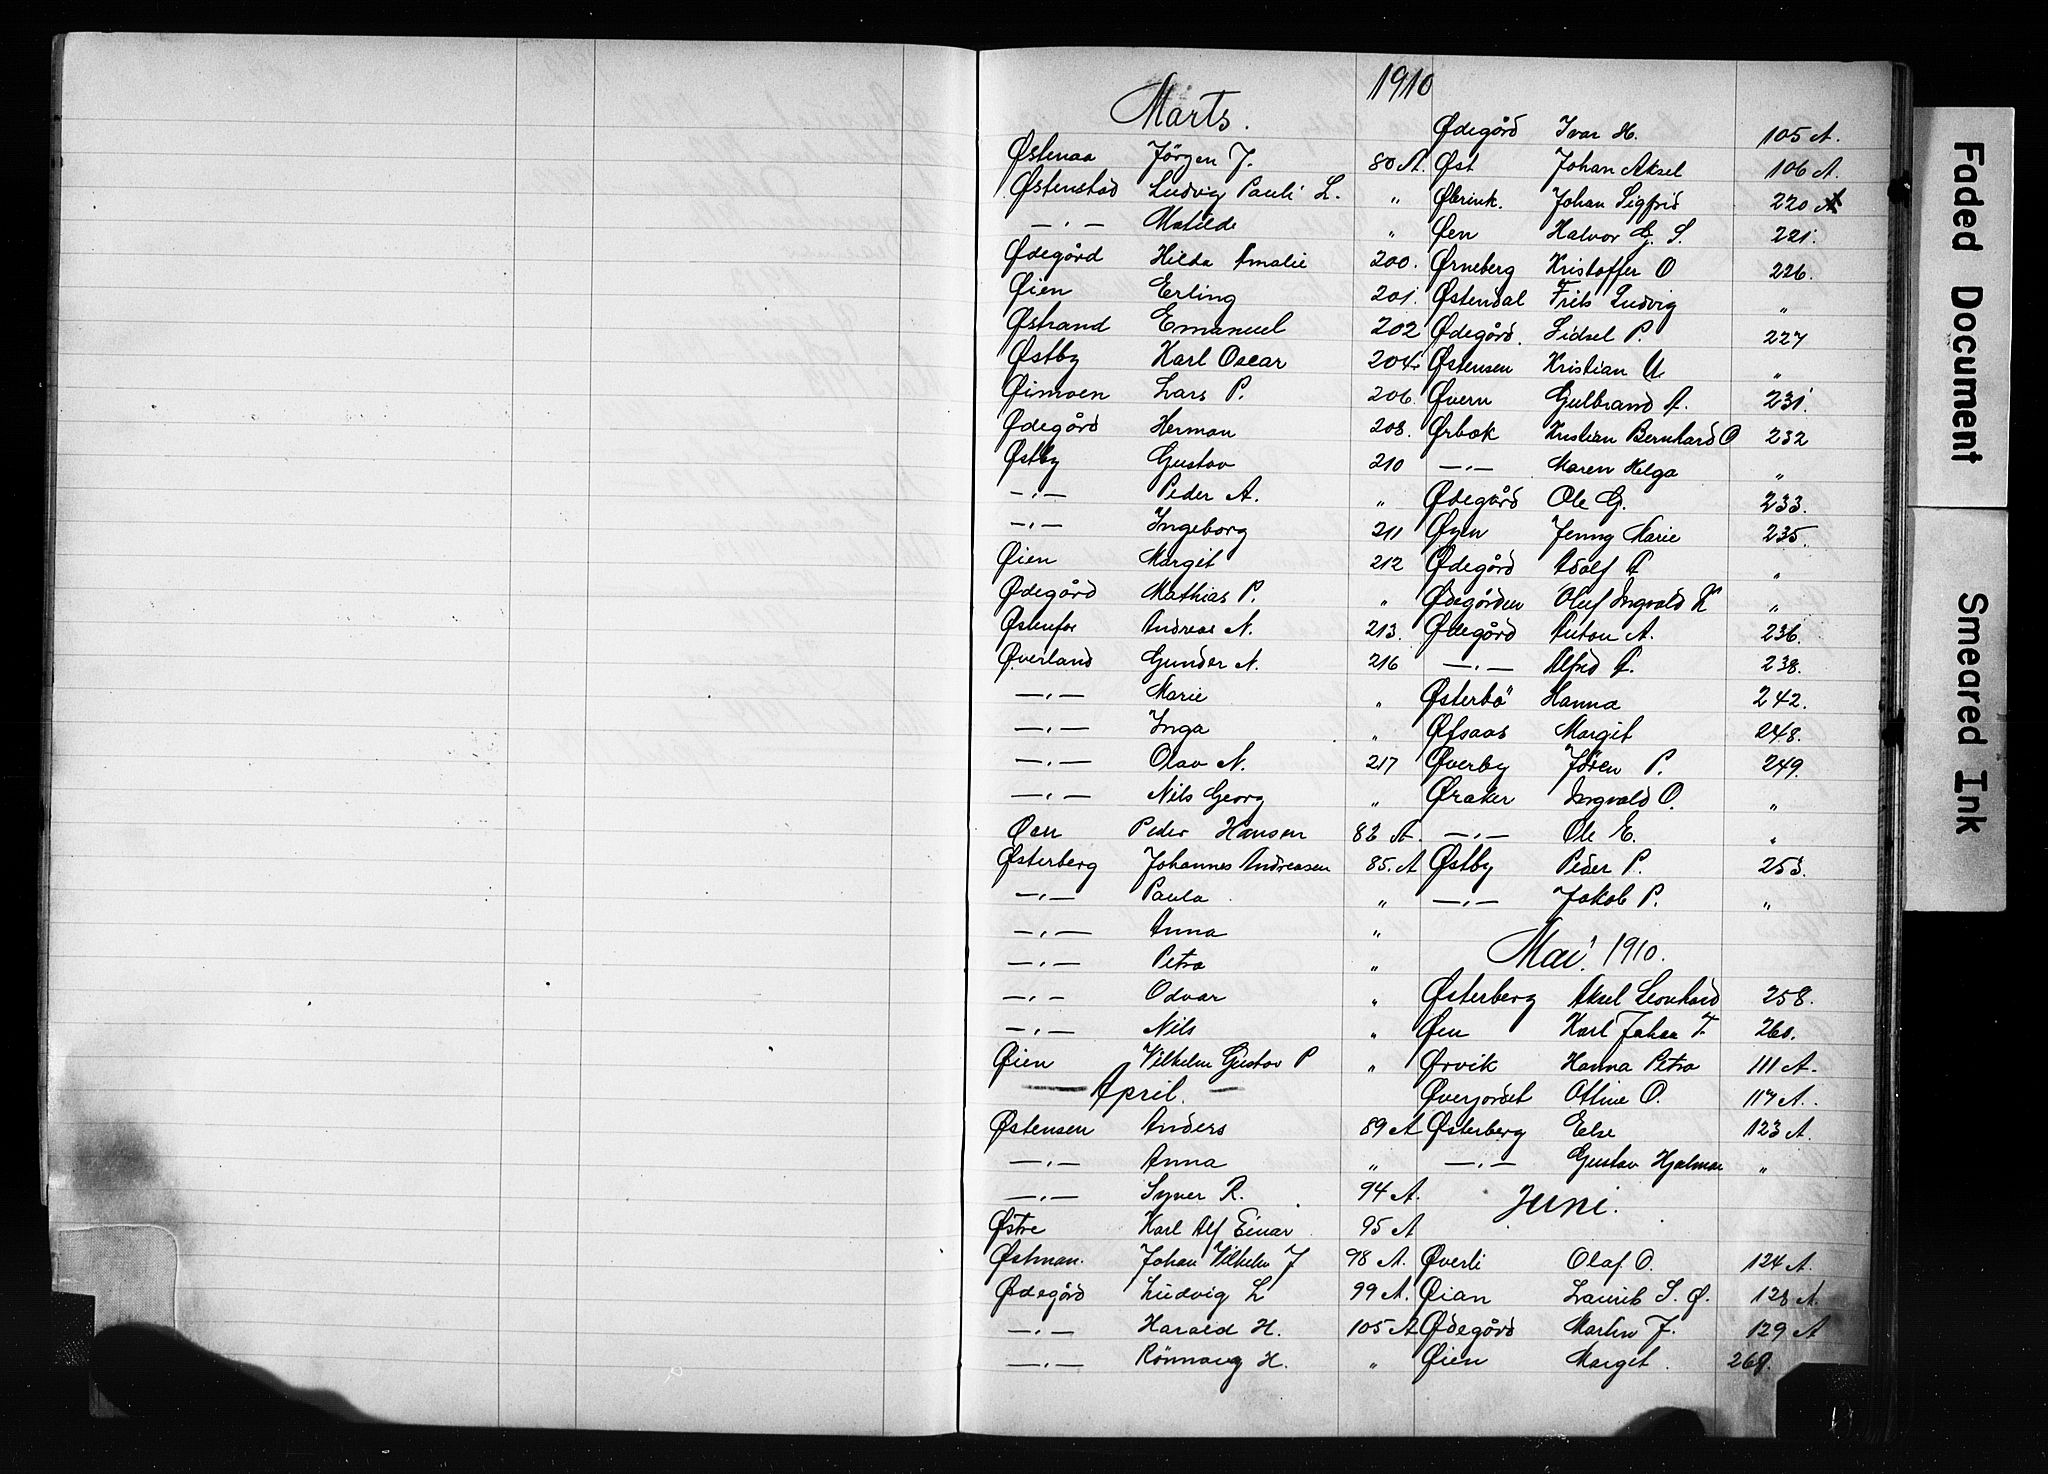 1910
Marts.
Østenaa Jörgen J. 80 A.
Østenstad Ludvig Pauli L. "
—„— Matilde "
Ødegård Hilda Amalie 200.
Øien Erling 201.
Østrand Emanuel 202
Østby Karl Oscar 204.
Øimoen Lars P. 206.
Ødegård Herman 208.
Østby Gustav 210
—„— Peder A. "
—„— Ingeborg 211
Øien Margit 212
Ødegård Mathias P. "
Østenfor Andreas N. 213.
Øverland Gunder N. 216
—„— Marie "
—„— Inga "
—„— Olav N. 217
—„— Nils Georg "
Øen Peder Hansen 82 A.
Østerberg Johannes Andreasen 85. A
—„— Paula "
—„— Anna "
—„— Petra "
—„— Odvar "
—„— Nils "
Øien Vilhelm Gustav P "
April.
Østensen Anders 89 A
—„— Anna "
—„— Syver R. 94 A.
Østre Karl Alf Einar 95 A
Østman. Johan Vilhelm J 98 A.
Ødegård Ludvig L 99 A.
—„— Harald H. 105 A
—„— Rönnaug H. "
Ødegård Ivar H. 105 A.
Øst Johan Aksel 106 A.
Johan Sigfrid 220
Øen Halvor G. S. 221.
Ørneberg Kristoffer O 226.
Østendal Frits Ludvig "
Ødegård. Sidsel P. 227
Østensen Kristian U. "
Øvern Gulbrand A. 231.
Ørbæk Kristian Bernhard O 232
—„— Maren Helga "
Ødegård Ole G. 233.
Øyen Jenny Marie 235.
Ødegård Adolf A "
Ødegården Oluf Ingvald K "
Ødegård Anton A. 236.
—„— Alfred A. 238.
Østerbö Hanna 242.
Øfsaas Margit 248.
Øverby Jören P. 249.
Øraker Ingvald O. "
—„— Ole E. "
Østby Peder P. 253.
—„— Jakob P. "
Mai. 1910.
Østerberg Aksel Leonhard 258.
Øen Karl Johan T 260.
Ørvik Hanna Petra 111 A.
Øverjordet Ottine O. 117 A.
Østerberg Else 123 A.
—„— Gustav Hjalmar "
Juni.
Øverli Olaf O. 124 A.
Øian Laurits S. Ø. 128 A.
Ødegård Martin J. 129 A
Øien Margit. 269.
Faded Document
Smeared Ink